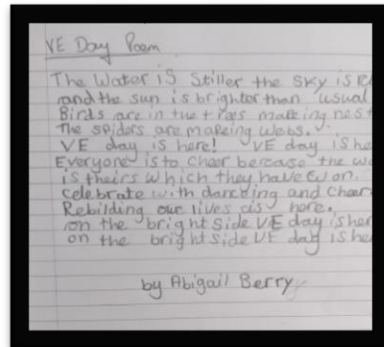 VE Day Poem
The Water is Stiller the sky is
and the sun is brighter than usual
Birds are in the trees makeing nest
The spiders are makeing webs.
VE day is here! VE day is he
Everyone is to cheer because the
is theirs which they have won.
celebrate with dancding and cheer
Rebilding our lives is here.
on the bright side VE day is her
on the bright side VE day is he
by Abigail Berry